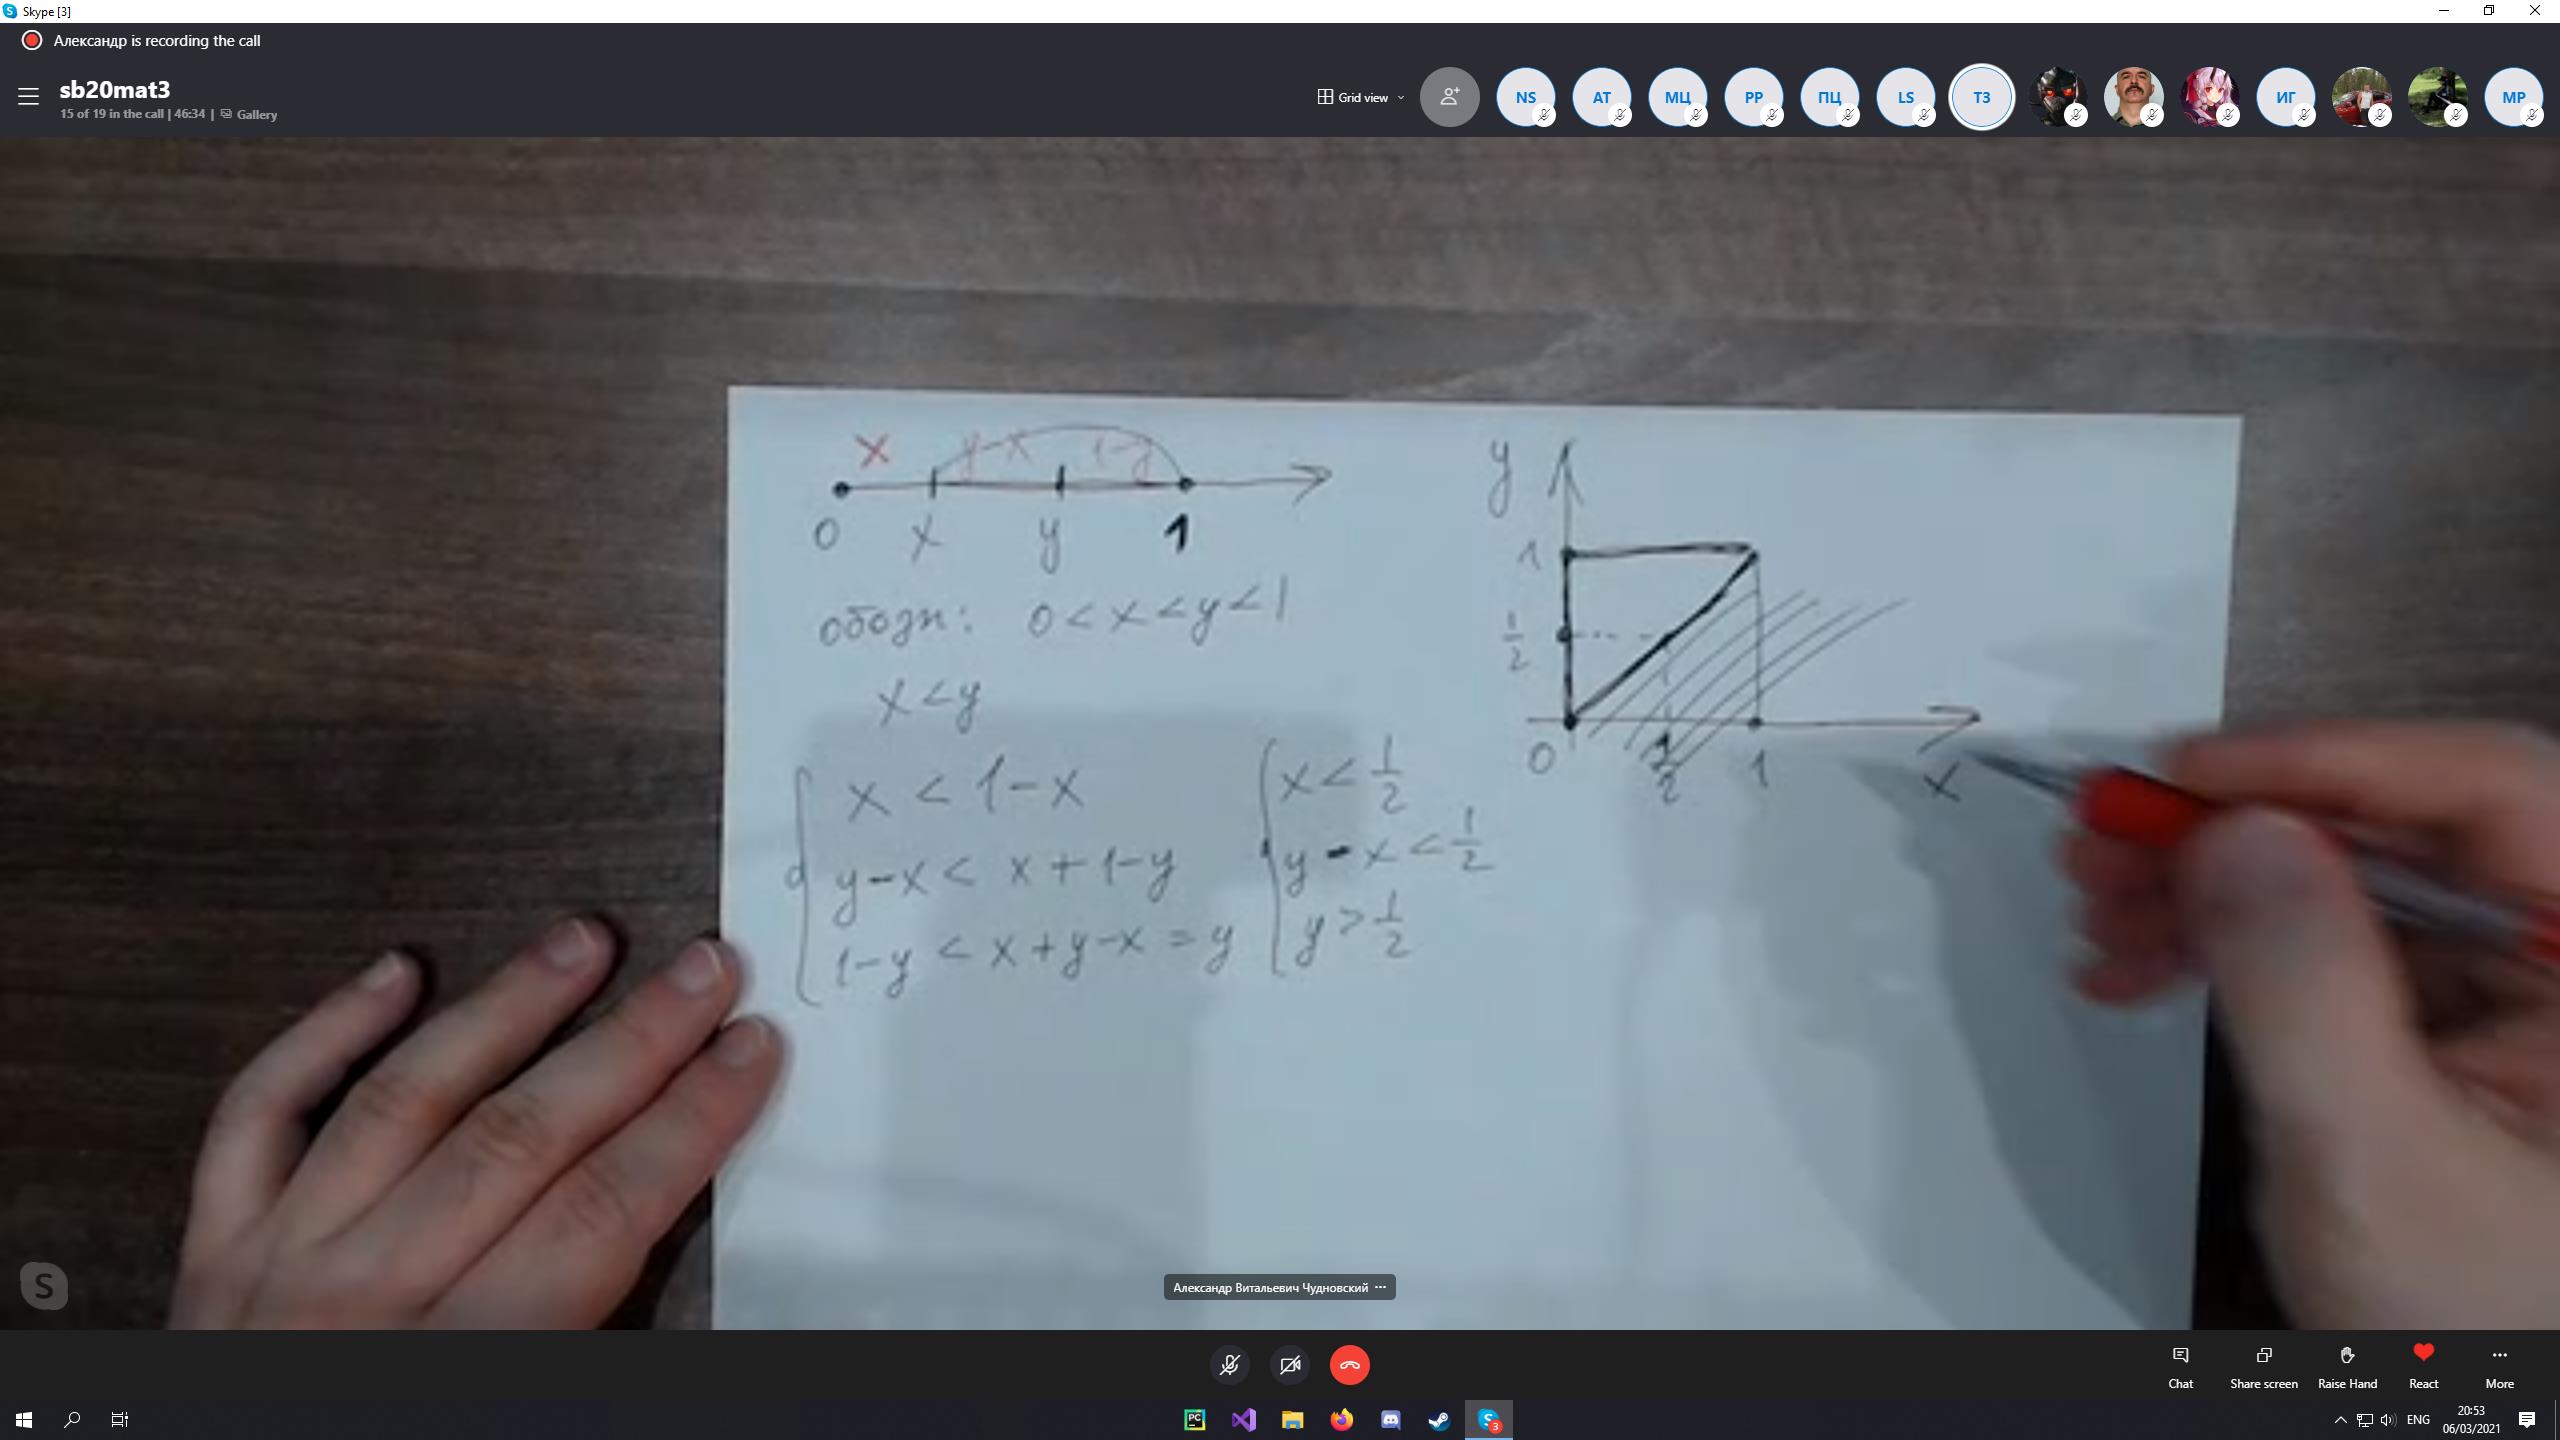 Skype [3]
Александр is recording the call
sb20mat3
15 of 19 in the call | 46:34 | Gallery
Grid view
NS
AT
МЦ
PP
ПЦ
LS
ТЗ
ИГ
MP
x y-x 1-y
0 x y 1
обозн: 0 < x < y < 1
x < y
x < 1-x
y-x < x+1-y
1-y < x+y-x = y
x < 1/2
y - x < 1/2
y > 1/2
y
1
1/2
0 1/2 1 x
Александр Витальевич Чудновский
Chat
Share screen
Raise Hand
React
More
PC
3
ENG
20:53
06/03/2021